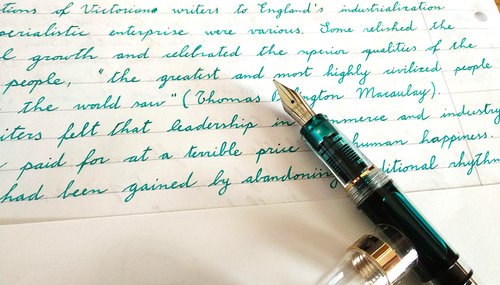 tions of Victorian writers to England's industrialization
perialistic enterprise were various. Some relished the
l growth and celebrated the superior qualities of the
people, "the greatest and most highly civilized people
the world saw" (Thomas ington Macaulay).
iters felt that leadership in mmerce and industry
paid for at a terrible price human happiness.
had been gained by abandoning ditional rhythm